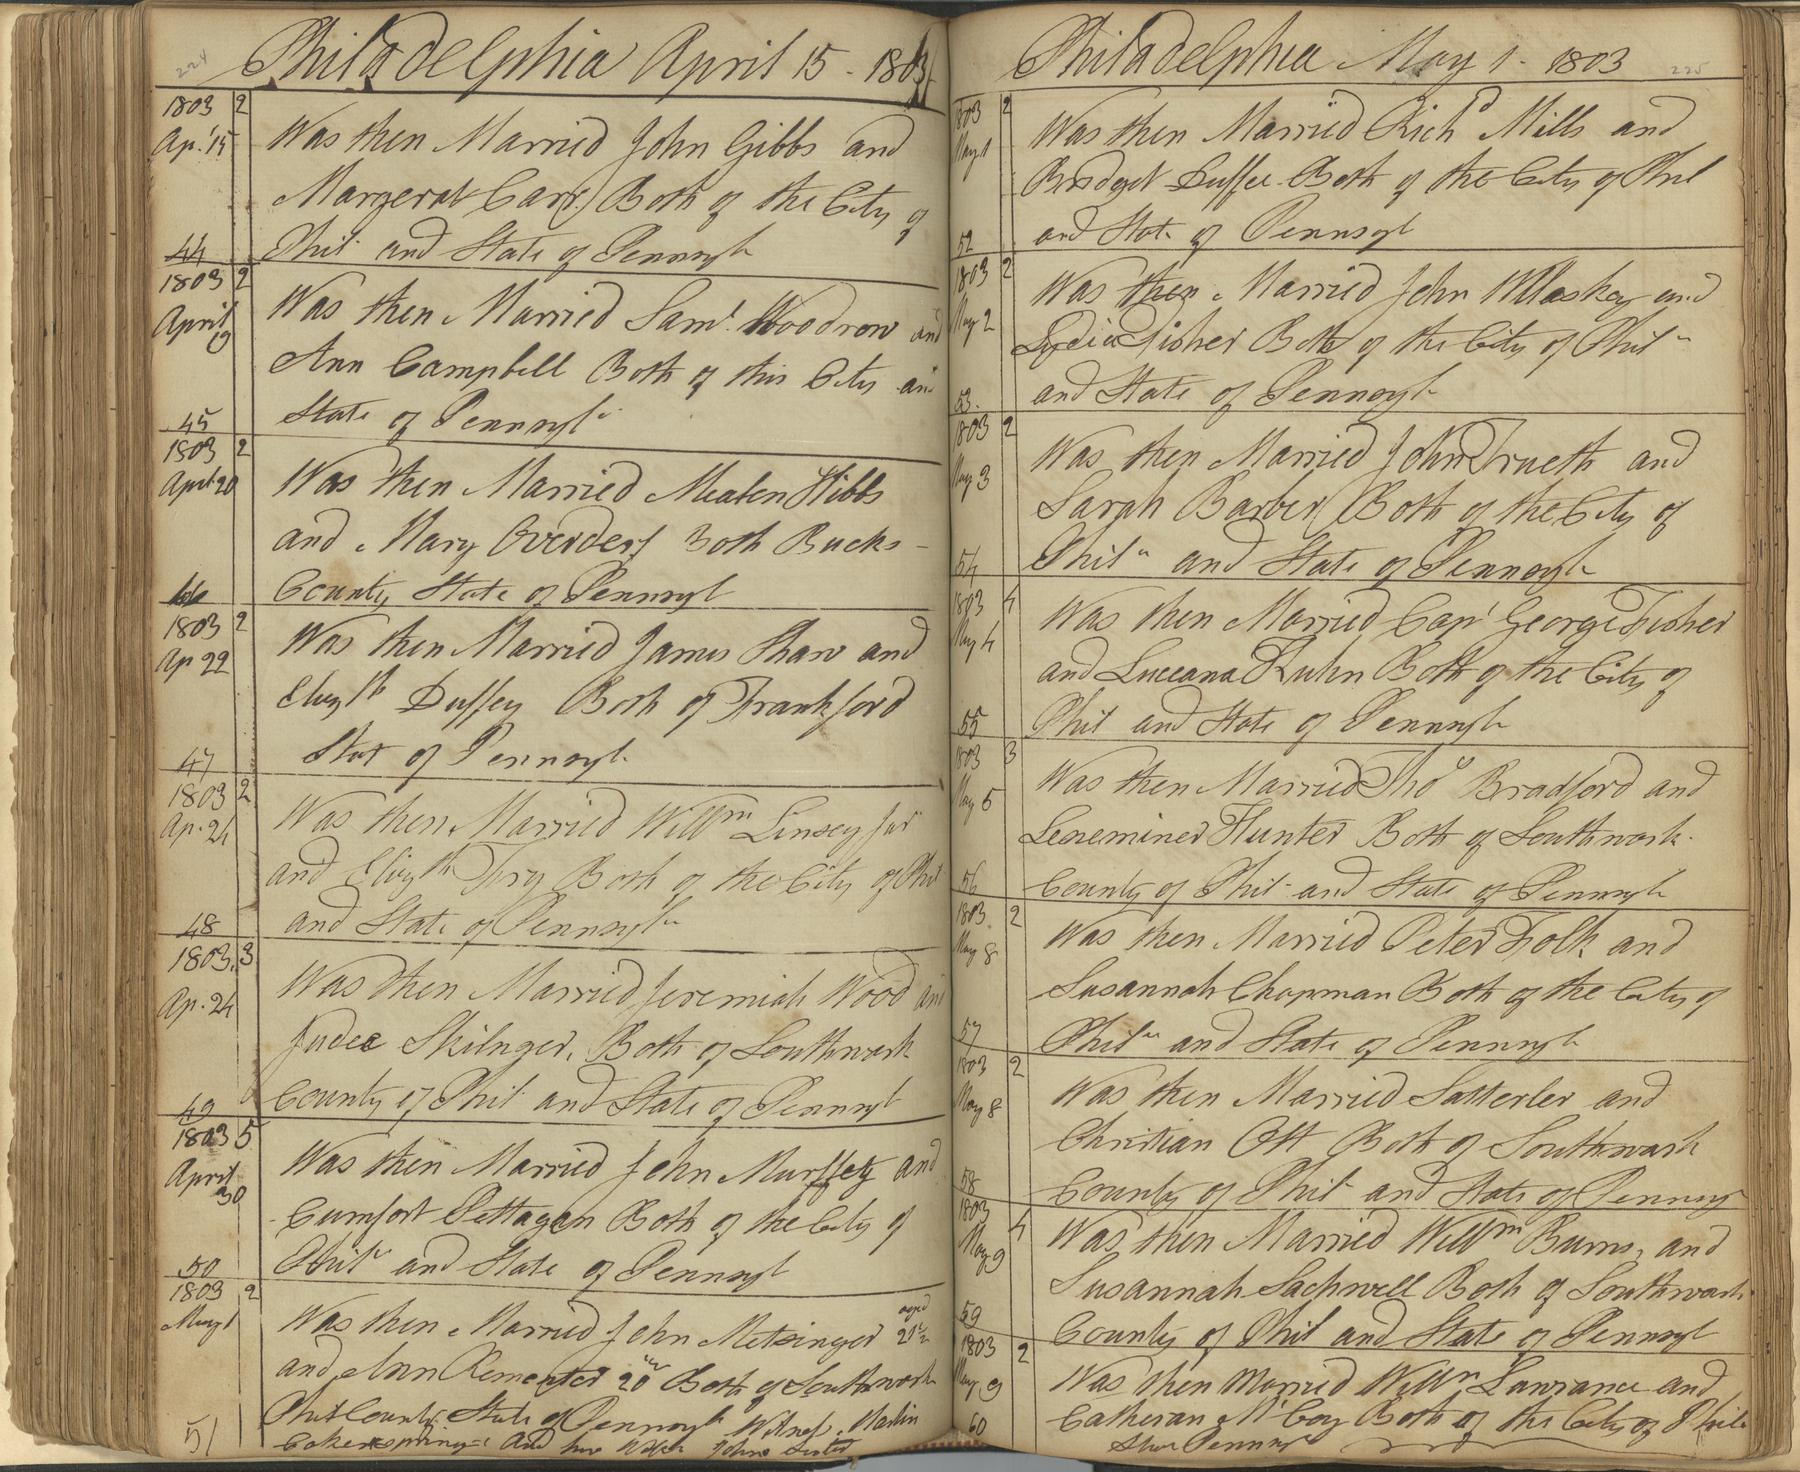 224
Philadelphia April 15 - 1803
1803 2
Ap. 15
Was then Married John Gibbs and
Margerat Carr. Both of the City of
44
Phil and State of Pennsyl
1803 2
April 19
Was then Married Sam.l Woodrow and
Ann Campbell Both of this City and
45
State of Pennsyl
1803 2
April 20
Was then Married Meaken Hibbs
and Mary Overderf Both Bucks -
46
County State of Pennsyl
1803 2
Ap 22
Was then Married James Shaw and
Elizth Duffey Both of Frankford
47
Stat of Pennsyl
1803 2
Ap. 24
Was then Married Willm Linsey Jur
and Elizth Fry Both of the City of Phil
48
and State of Pennsyl
1803 3
Ap. 24
Was then Married Jeremiah Wood and
Judee Skilnger. Both of Southwark
49
County of Phil and State of Pennsyl
1803 5
April 30
Was then Married John Murffey and
Cumfort Pettagen Both of the City of
50
Phil and State of Pennsyl
1803 2
May 1
Was then Married John Metzinger aged 21
and Ann Rementer 20 Both of Southwark
Phil County State of Pennsyl Witness. Martin
51
and Johns Sister
225
Philadelphia May 1 - 1803
1803 2
May 1
Was then Married Richd Mills and
Bridget Duffee Both of the City of Phil
52
and State of Pennsyl
1803 2
May 2
Was then Married John and
Lydia Fisher Both of the City of Phil
53.
and State of Pennsyl
1803 2
May 3
Was then Married John Trueth and
Sarah Barber Both of the City of
54
Phila and State of Pennsyl
1803 4
May 4
Was then Married Capt George Fisher
and Luceana Kuhn Both of the City of
55
Phil and State of Pennsyl
1803 3
May 5
Was then Married Tho Bradford and
Leneminer Hunter Both of Southwark.
56
County of Phil and State of Pennsyl
1803 2
May 8
Was then Married Peter Folk and
Susannah Chapman Both of the City of
57
Phila and State of Pennsyl
1803 2
May 8
Was then Married Satterler and
Christian Ott Both of Southwark
58
County of Phil and State of Pennsyl
1803 4
May 9
Was then Married Willm Burns, and
Susannah Sachwell Both of Southwark
59
County of Phil and State of Pennsyl
1803 2
May 9
Was then Married Willm Lawrance and
Catheran McCoy Both of the City of Phila
60
State Pennsyl